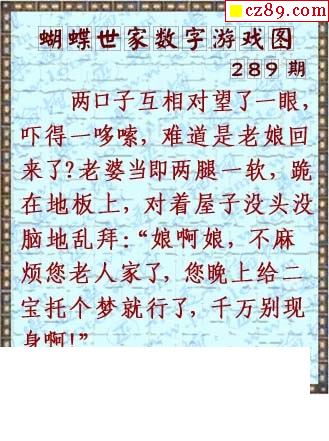 cz89.com
蝴蝶世家数字游戏图
289 期
两口子互相对望了一眼，
吓得一哆嗦，难道是老娘回
来了?老婆当即两腿一软，跪
在地板上，对着屋子没头没
脑地乱拜:“娘啊娘，不麻
烦您老人家了，您晚上给二
宝托个梦就行了，千万别现
身啊!”